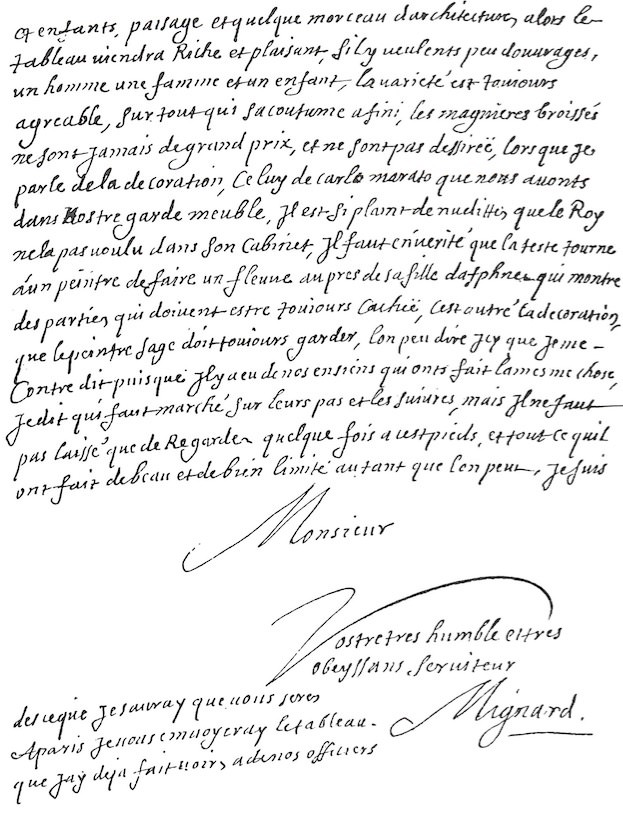 et enfants, paisage et quelque morceau darchitecture, alors le
tableau viendra Riche et plaisant, sil y veulents peu douvrages,
un homme une famme et un enfant, la varieté est toujours
agreable, sur tout qui sacoutume a fini, les magnieres broissés
ne sont jamais de grand prix, et ne sont pas dessirëe, lors que je
parle de la decoration, Celuy de carlo marato que nous avonts
dans Nostre garde meuble, Jl est si plaint de nudittés que le Roy
ne la pas voulu dans son Cabinet, Jl faut en verité que la teste tourne
a un peintre de faire un fleuve au pres de sa fille dafphnes qui montre
des parties qui doivent estre toujours Cachée, c'est outré la decoration,
que le peintre sage doit toujours garder, lon peu dire Jcy que Je me -
Contre dit puisque Jl y a eu de nos ensiens qui onts fait la mesme chose,
Je dit qui faut marché sur leurs pas et les suivres, mais Jl ne faut
pas laissé que de Regarder quelque fois a cest pieds, et tout ce quil
ont fait de beau et de bien limité autant que lon peut, Je suis
Monsieur
Vostre tres humble et tres
obeyssans serviteur
Mignard.
des ceque Je sauray que vous seres
A paris Je vous envoyeray le tableau -
que Jaÿ deja fait voir, a de nos officiers